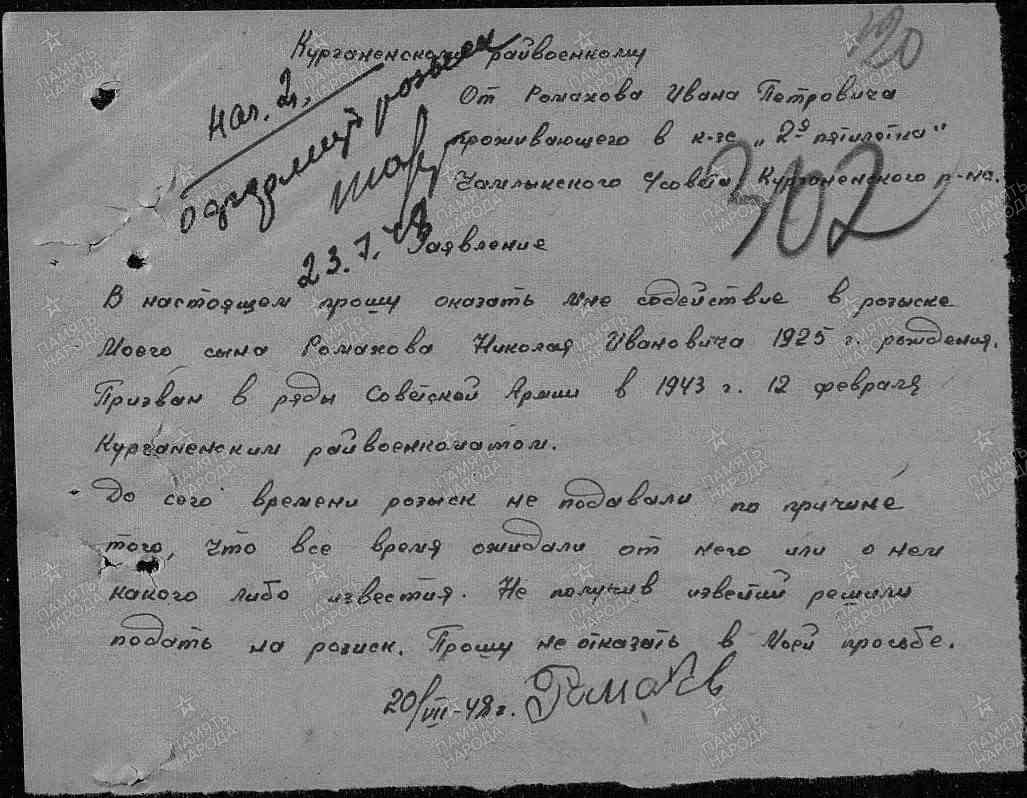 420
Курганенскому райвоенкому
Нач. 2ч.
От Ромахова Ивана Петровича
проживающего в к-зе "2я пятилетка"
Чамлыкского с/совета Курганенского р-на.
розыск
302
23.7.48
Заявление
В настоящем прошу оказать мне содействие в розыске
Моего сына Ромахова Николая Ивановича 1925 г. рождения.
Призван в ряды Советской Армии в 1943 г. 12 февраля
Курганенским райвоенкоматом.
До сего времени розыск не подавали по причине
того, что все время ожидали от него или о нем
какого либо известия. Не получив известий решили
подать на розиск. Прошу не отказать в моей просьбе.
20/VII-48 г. Ромахов
ПАМЯТЬ НАРОДА